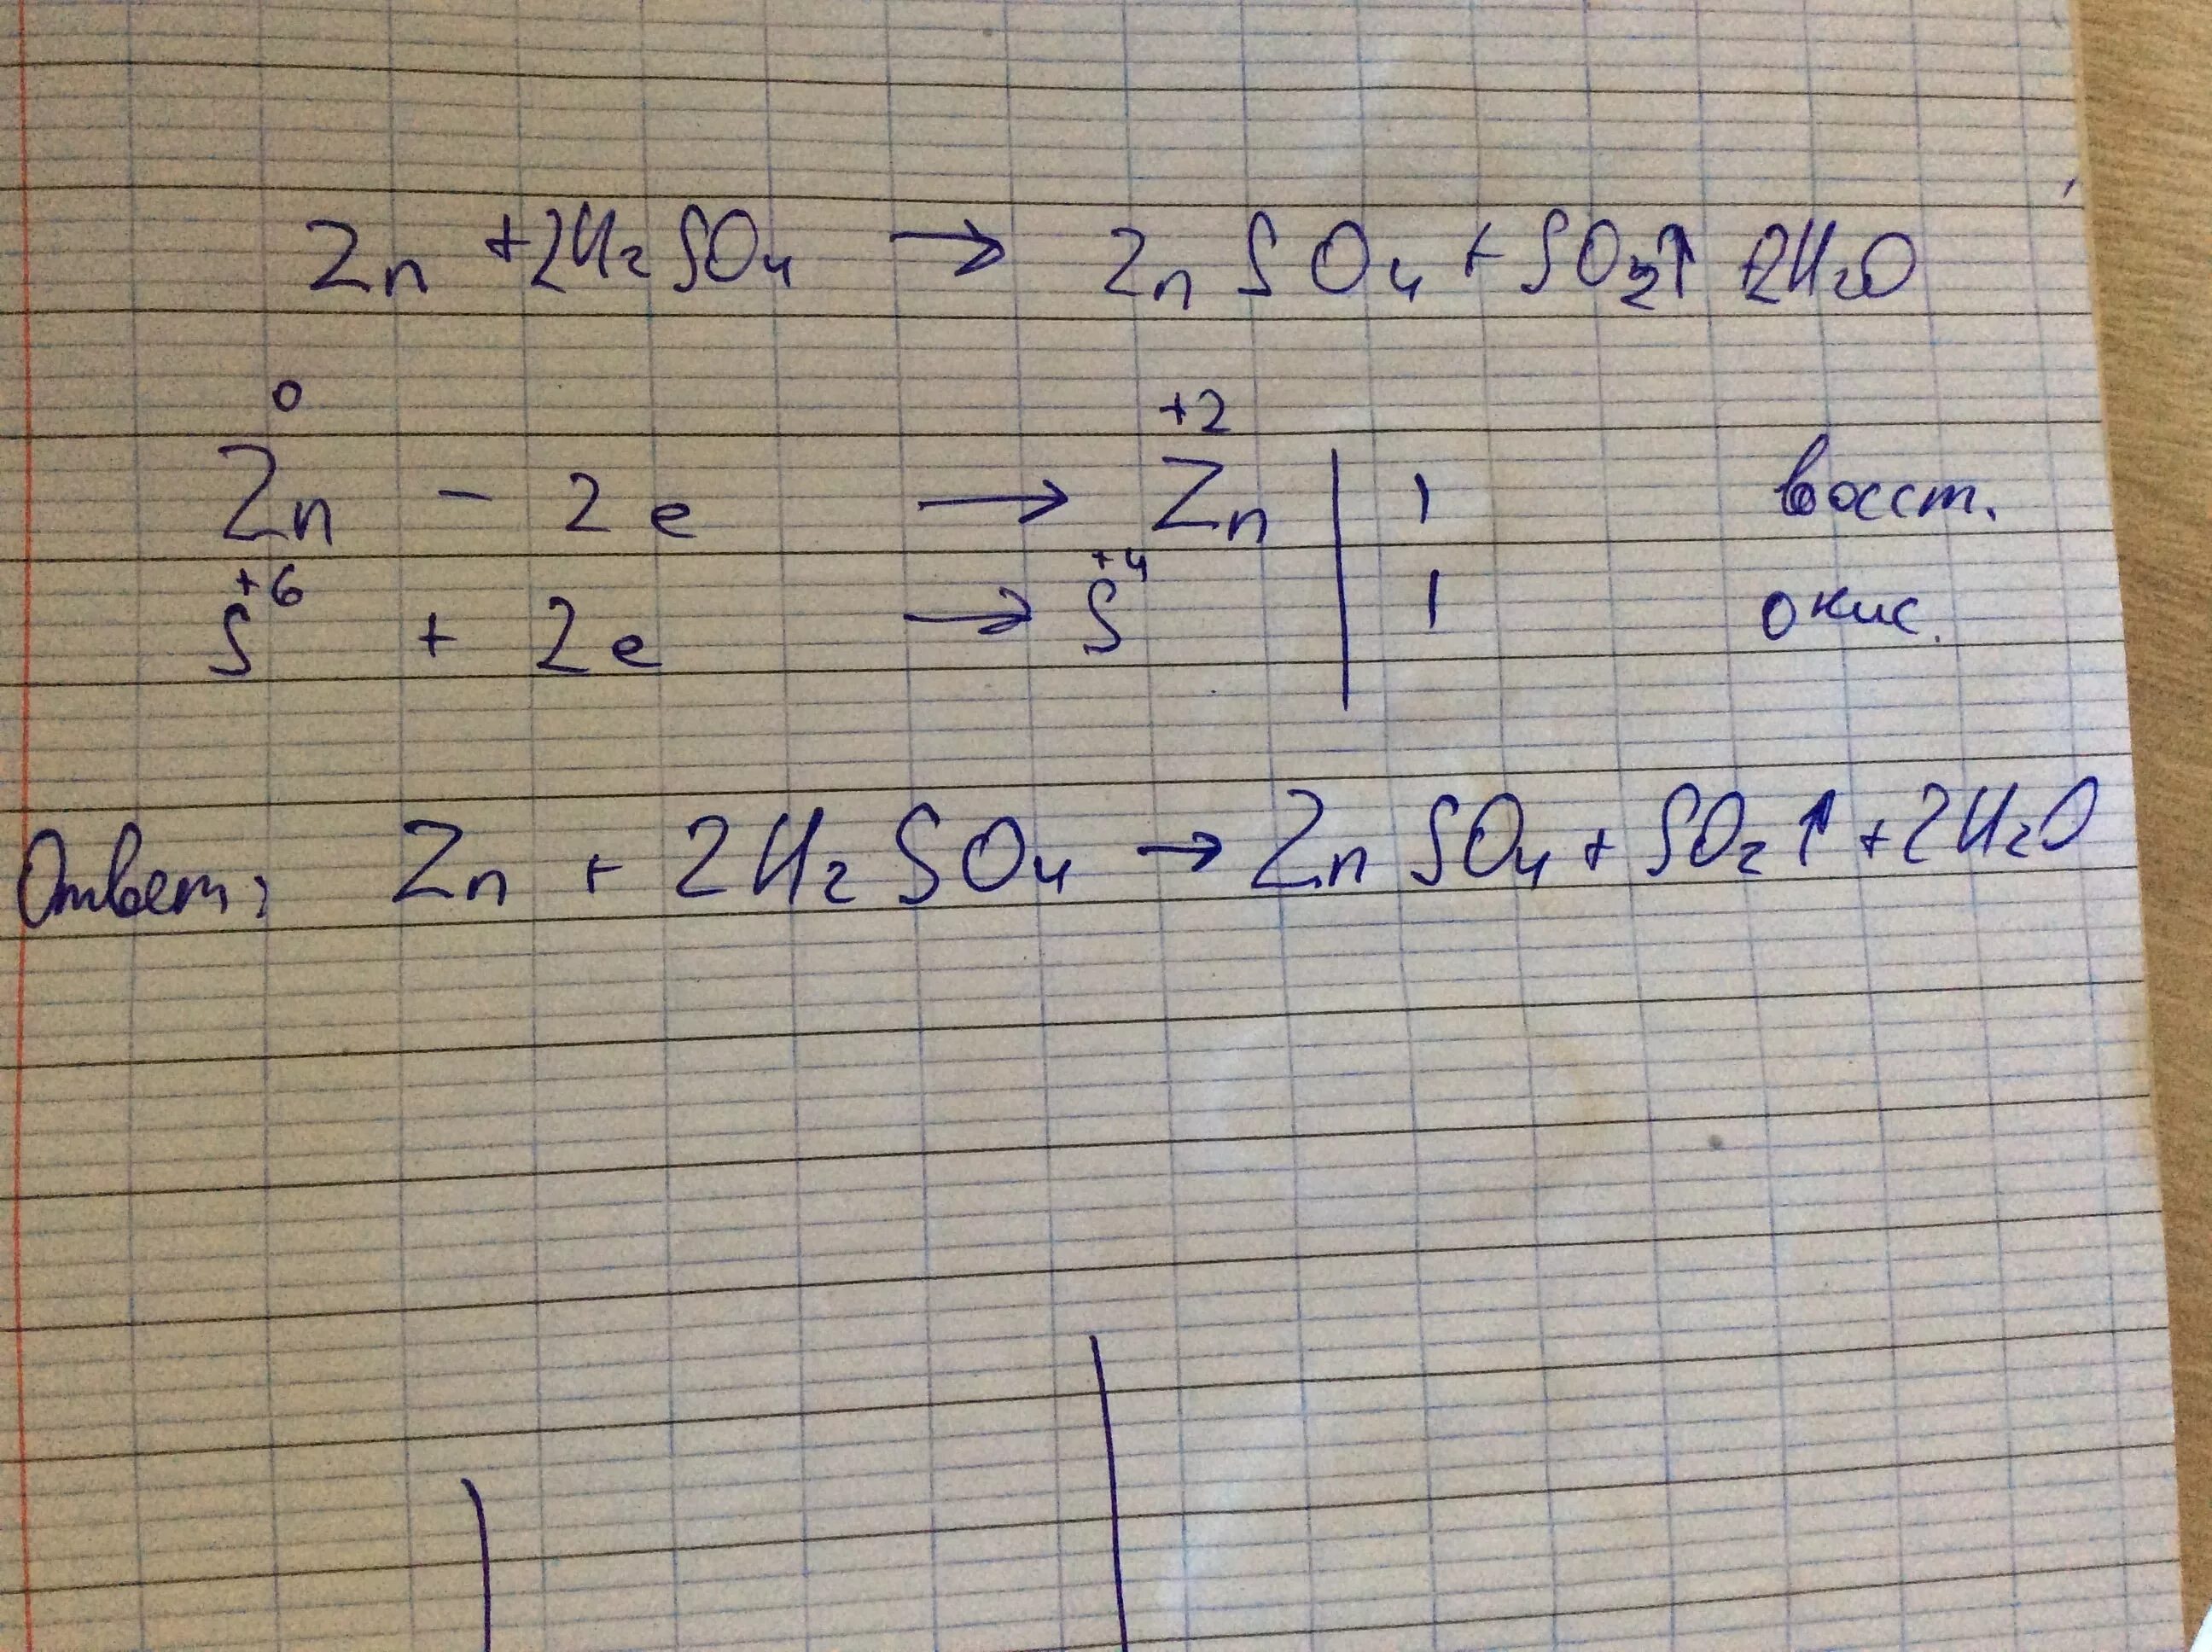 Zn + 2H₂SO₄ → ZnSO₄ + SO₂↑ 2H₂O
Zn⁰ - 2e → Zn⁺² | 1 восст.
S⁺⁶ + 2e → S⁺⁴ | 1 окис.
Ответ: Zn + 2H₂SO₄ → ZnSO₄ + SO₂↑ + 2H₂O